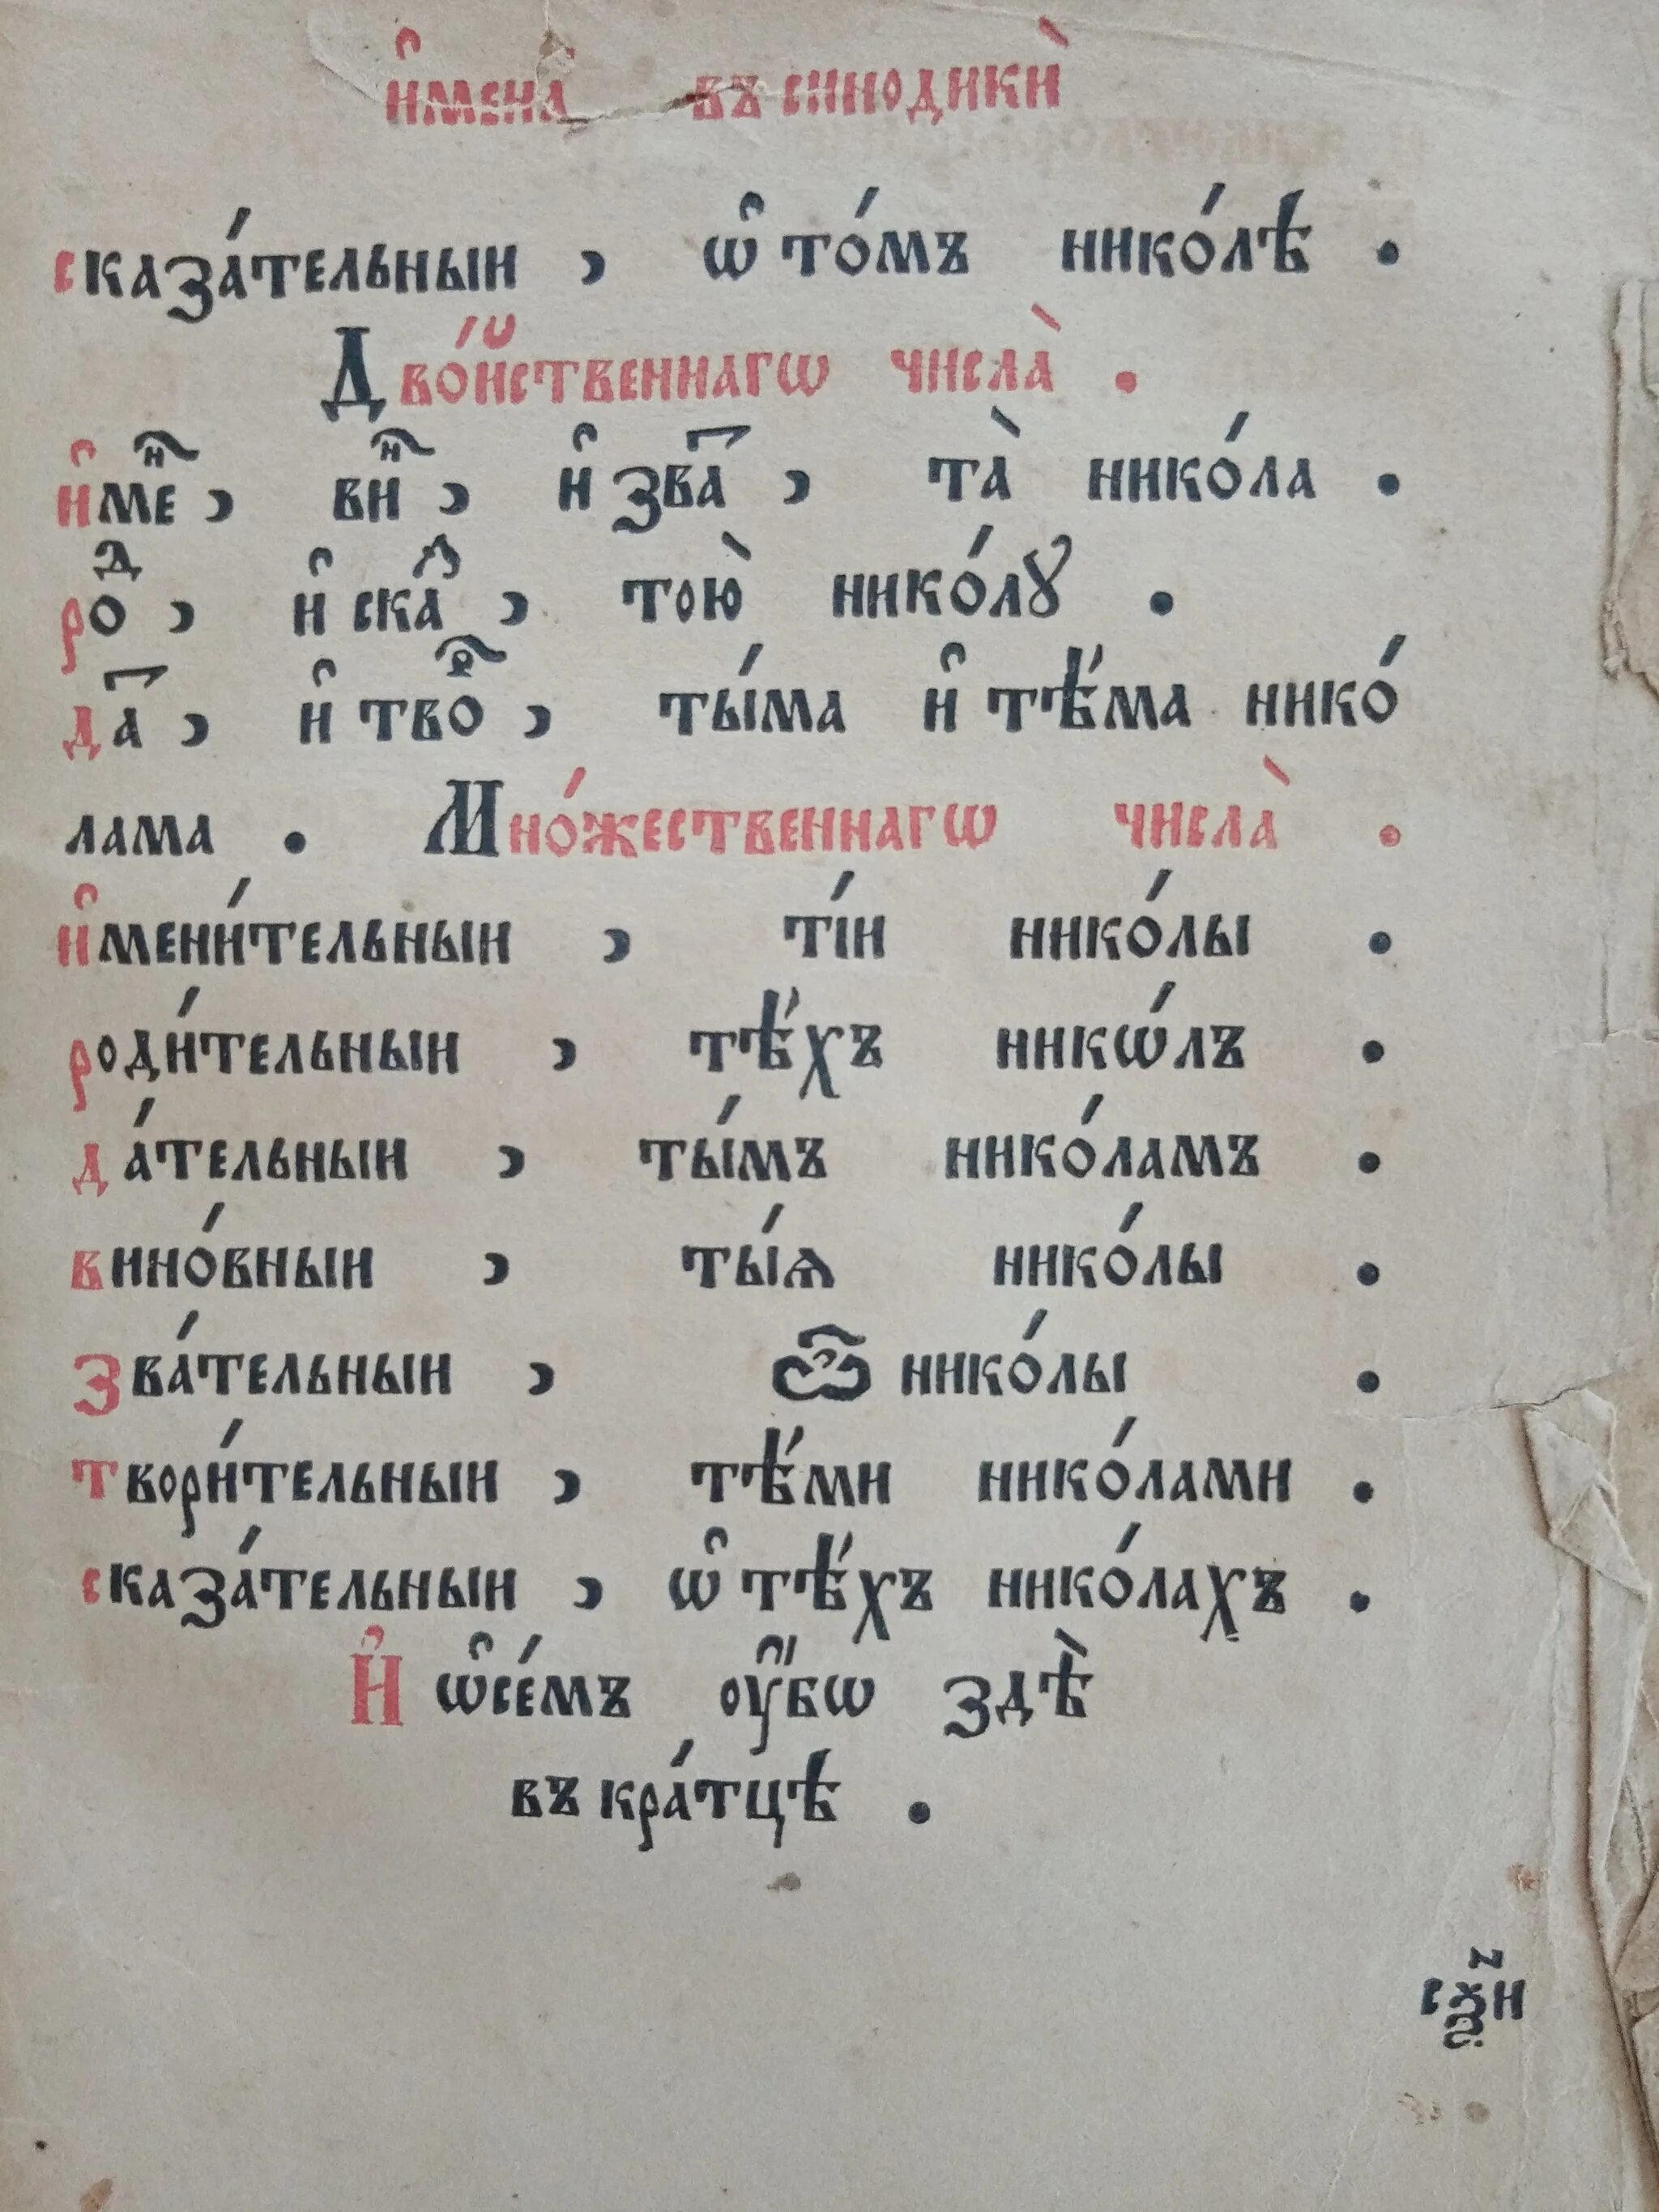 и҆мена̀ въ синодикѝ
сказа́тельныи , ѡ҆ то́мъ нико́лѣ .
Дво́йственнагѡ числа̀ .
и҆меⷩ҇ , виⷩ҇ , и҆ зва̄ , та̀ нико́ла .
роⷣ , и҆ скаⷥ , тою̀ нико́лꙋ .
да̄ , и҆ твоⷬ҇ , ты́ма и҆ тѣ́ма нико́
лама . Мно́жественнагѡ числа̀ .
и҆мени́тельныи , ті́и нико́лы .
роди́тельныи , тѣ́хъ никѡ́лъ .
да́тельныи , ты́мъ нико́ламъ .
вино́вныи , ты́ѧ нико́лы .
зва́тельныи , ѽ нико́лы .
твори́тельныи , тѣ́ми нико́лами .
сказа́тельныи , ѡ҆ тѣ́хъ нико́лахъ .
И҆ ѡ҆се́мъ оу҆́бѡ здѣ̀
въ кра́тцѣ .
сѯ҃и